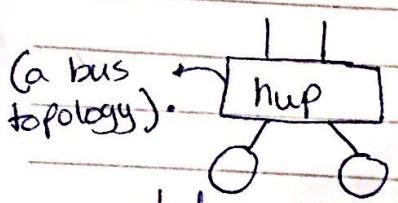 (a bus
topology).
hup